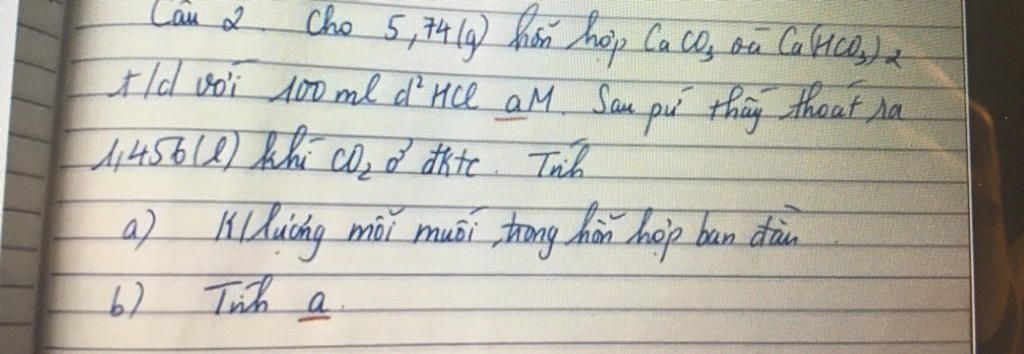 Câu 2 Cho 5,74(g) hỗn hợp CaCO₃ và Ca(HCO₃)₂
t/d với 100ml d² HCl aM. Sau pứ thấy thoát ra
1,456(l) khí CO₂ ở đktc. Tính
a) K/lượng mỗi muối trong hỗn hợp ban đầu.
b) Tính a.